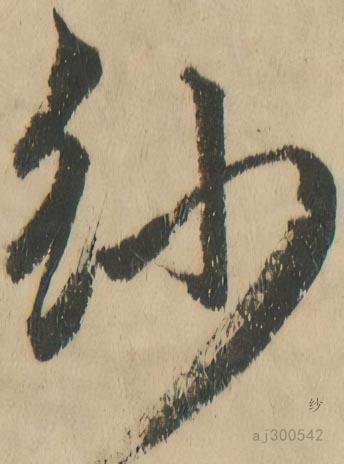 纱
纱
aj300542